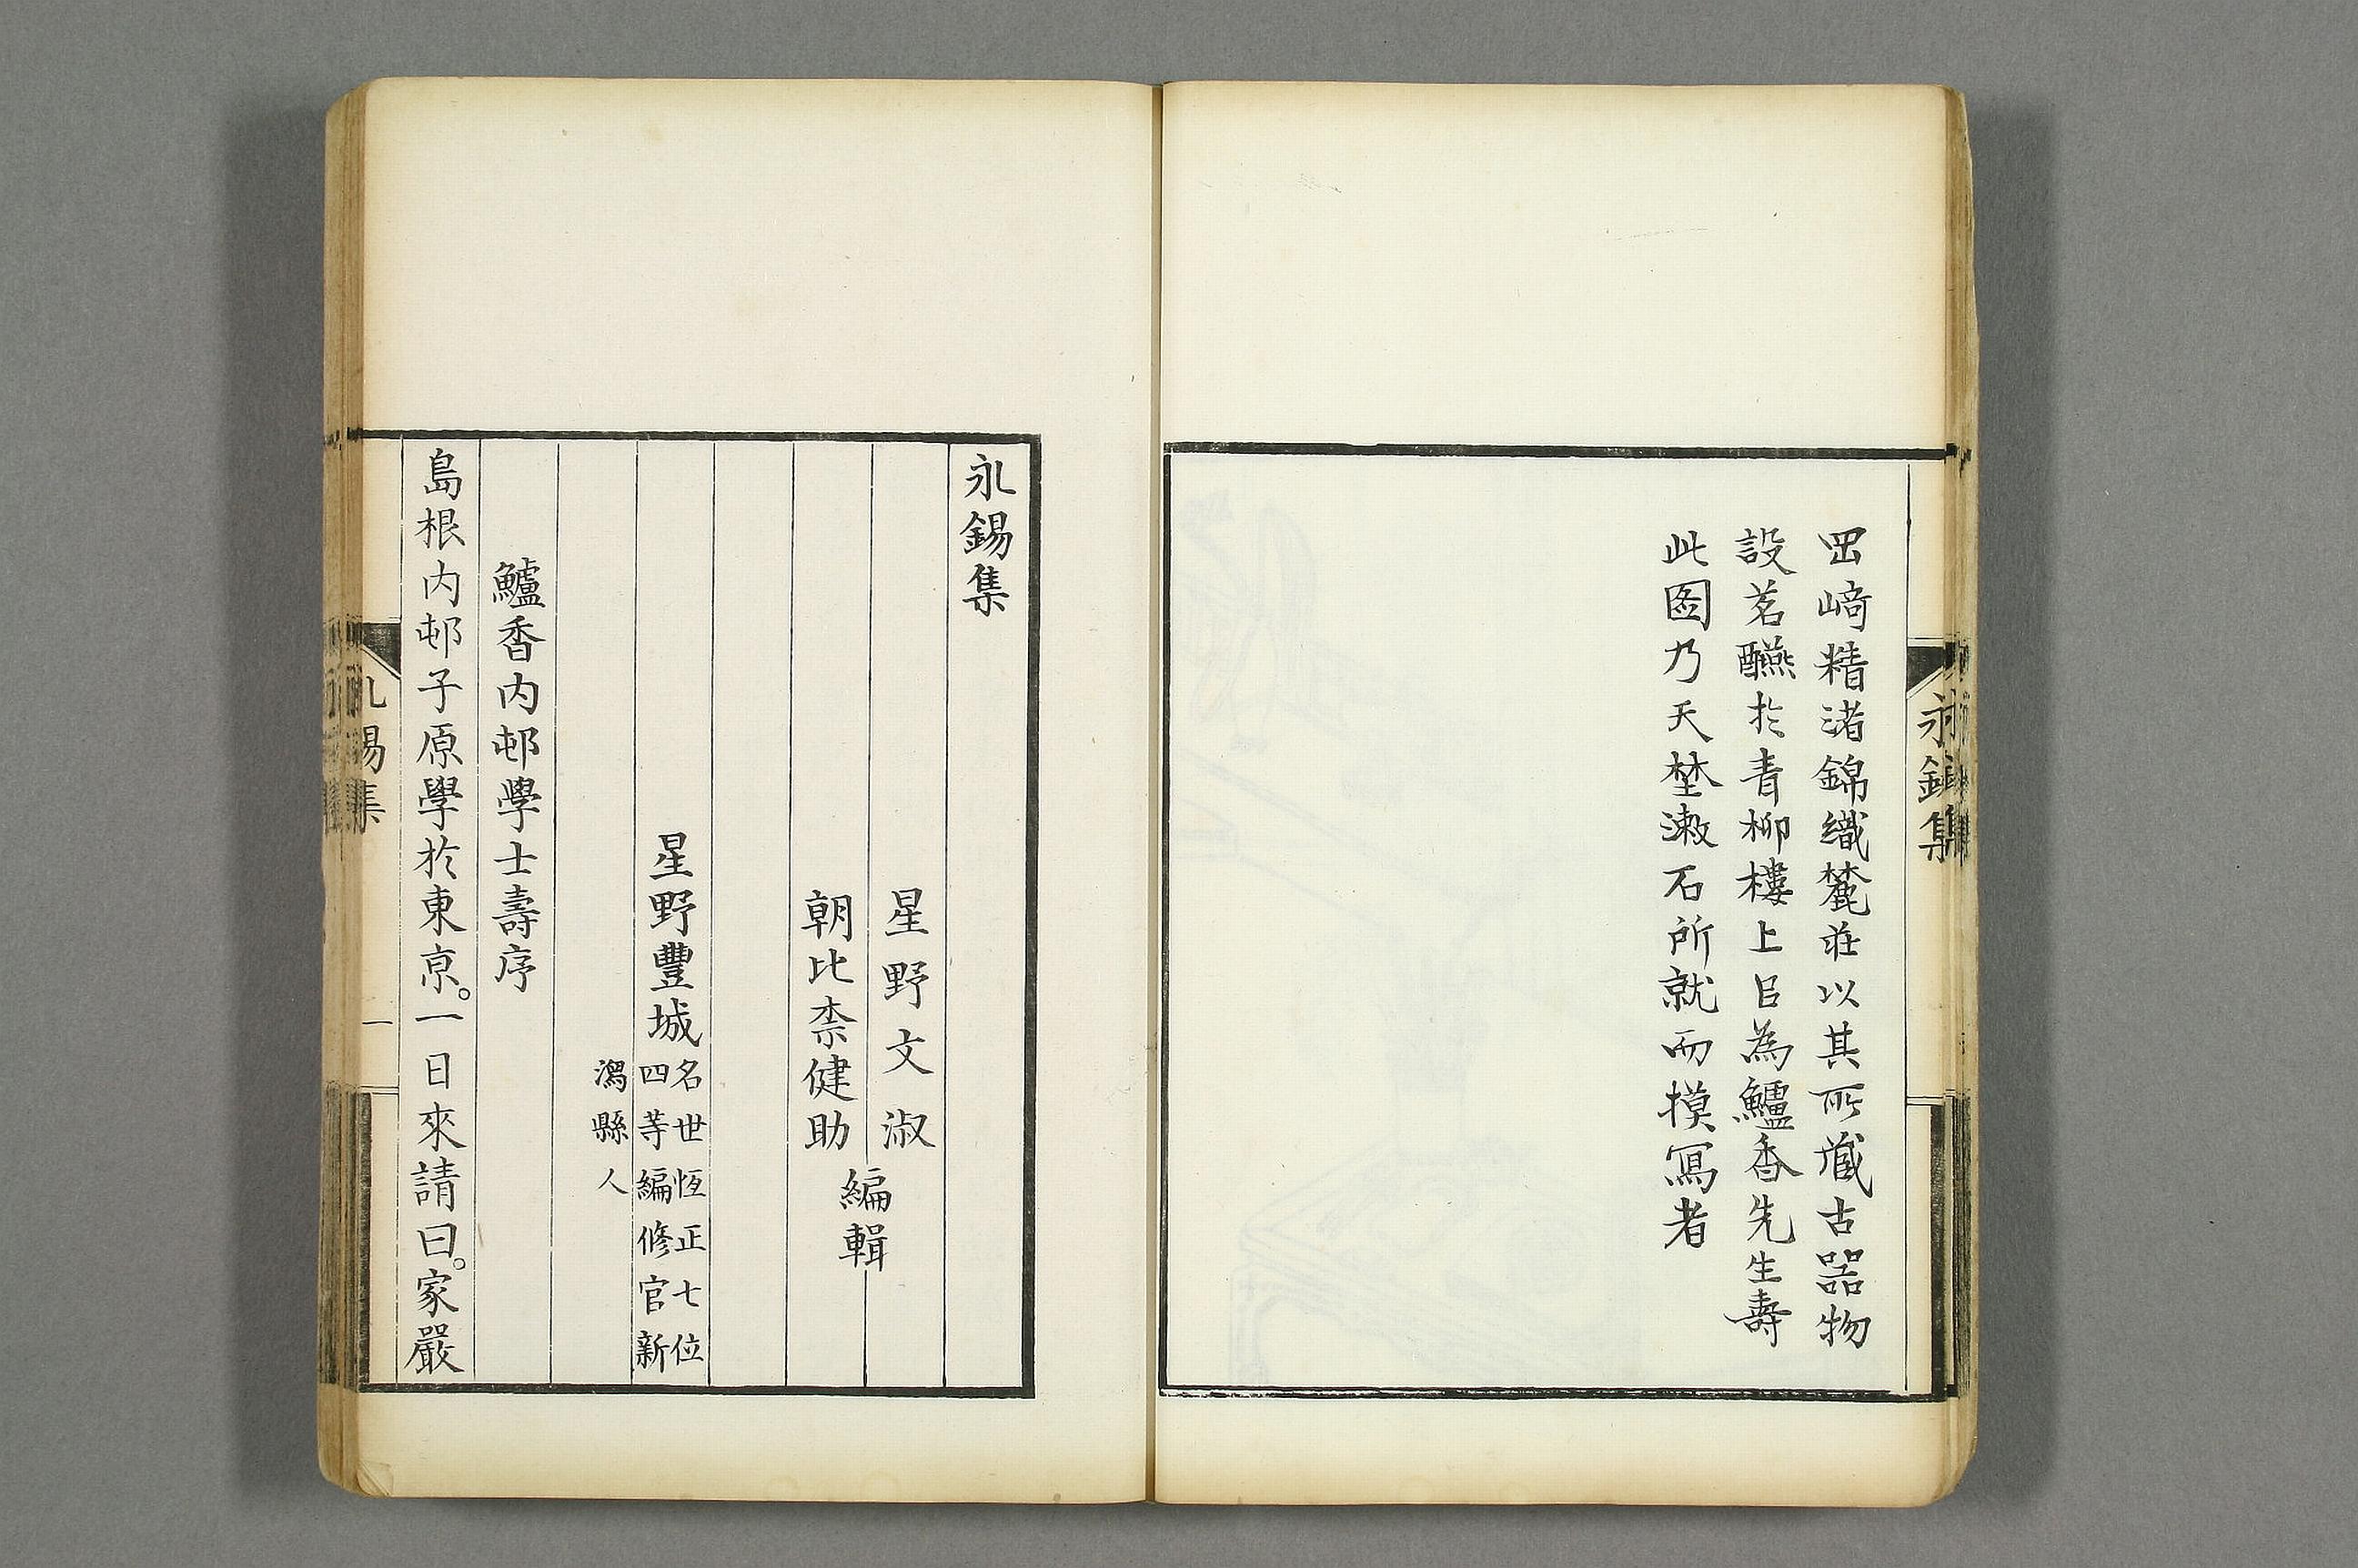 罡﨑精渚錦織蔍荘以其所蔵古器物
設茗醼扵青柳樓上㠯為鱸香先生壽
此图乃天埜潄石所就而摸寫者
永錫集
永錫集
星野文淑
朝比柰健助
編輯
星野豐城
名世恆正七位
四等編修官新
潟縣人
鱸香内邨學士壽序
島根内邨子原學於東京。一日來請曰。家嚴
錫集
一